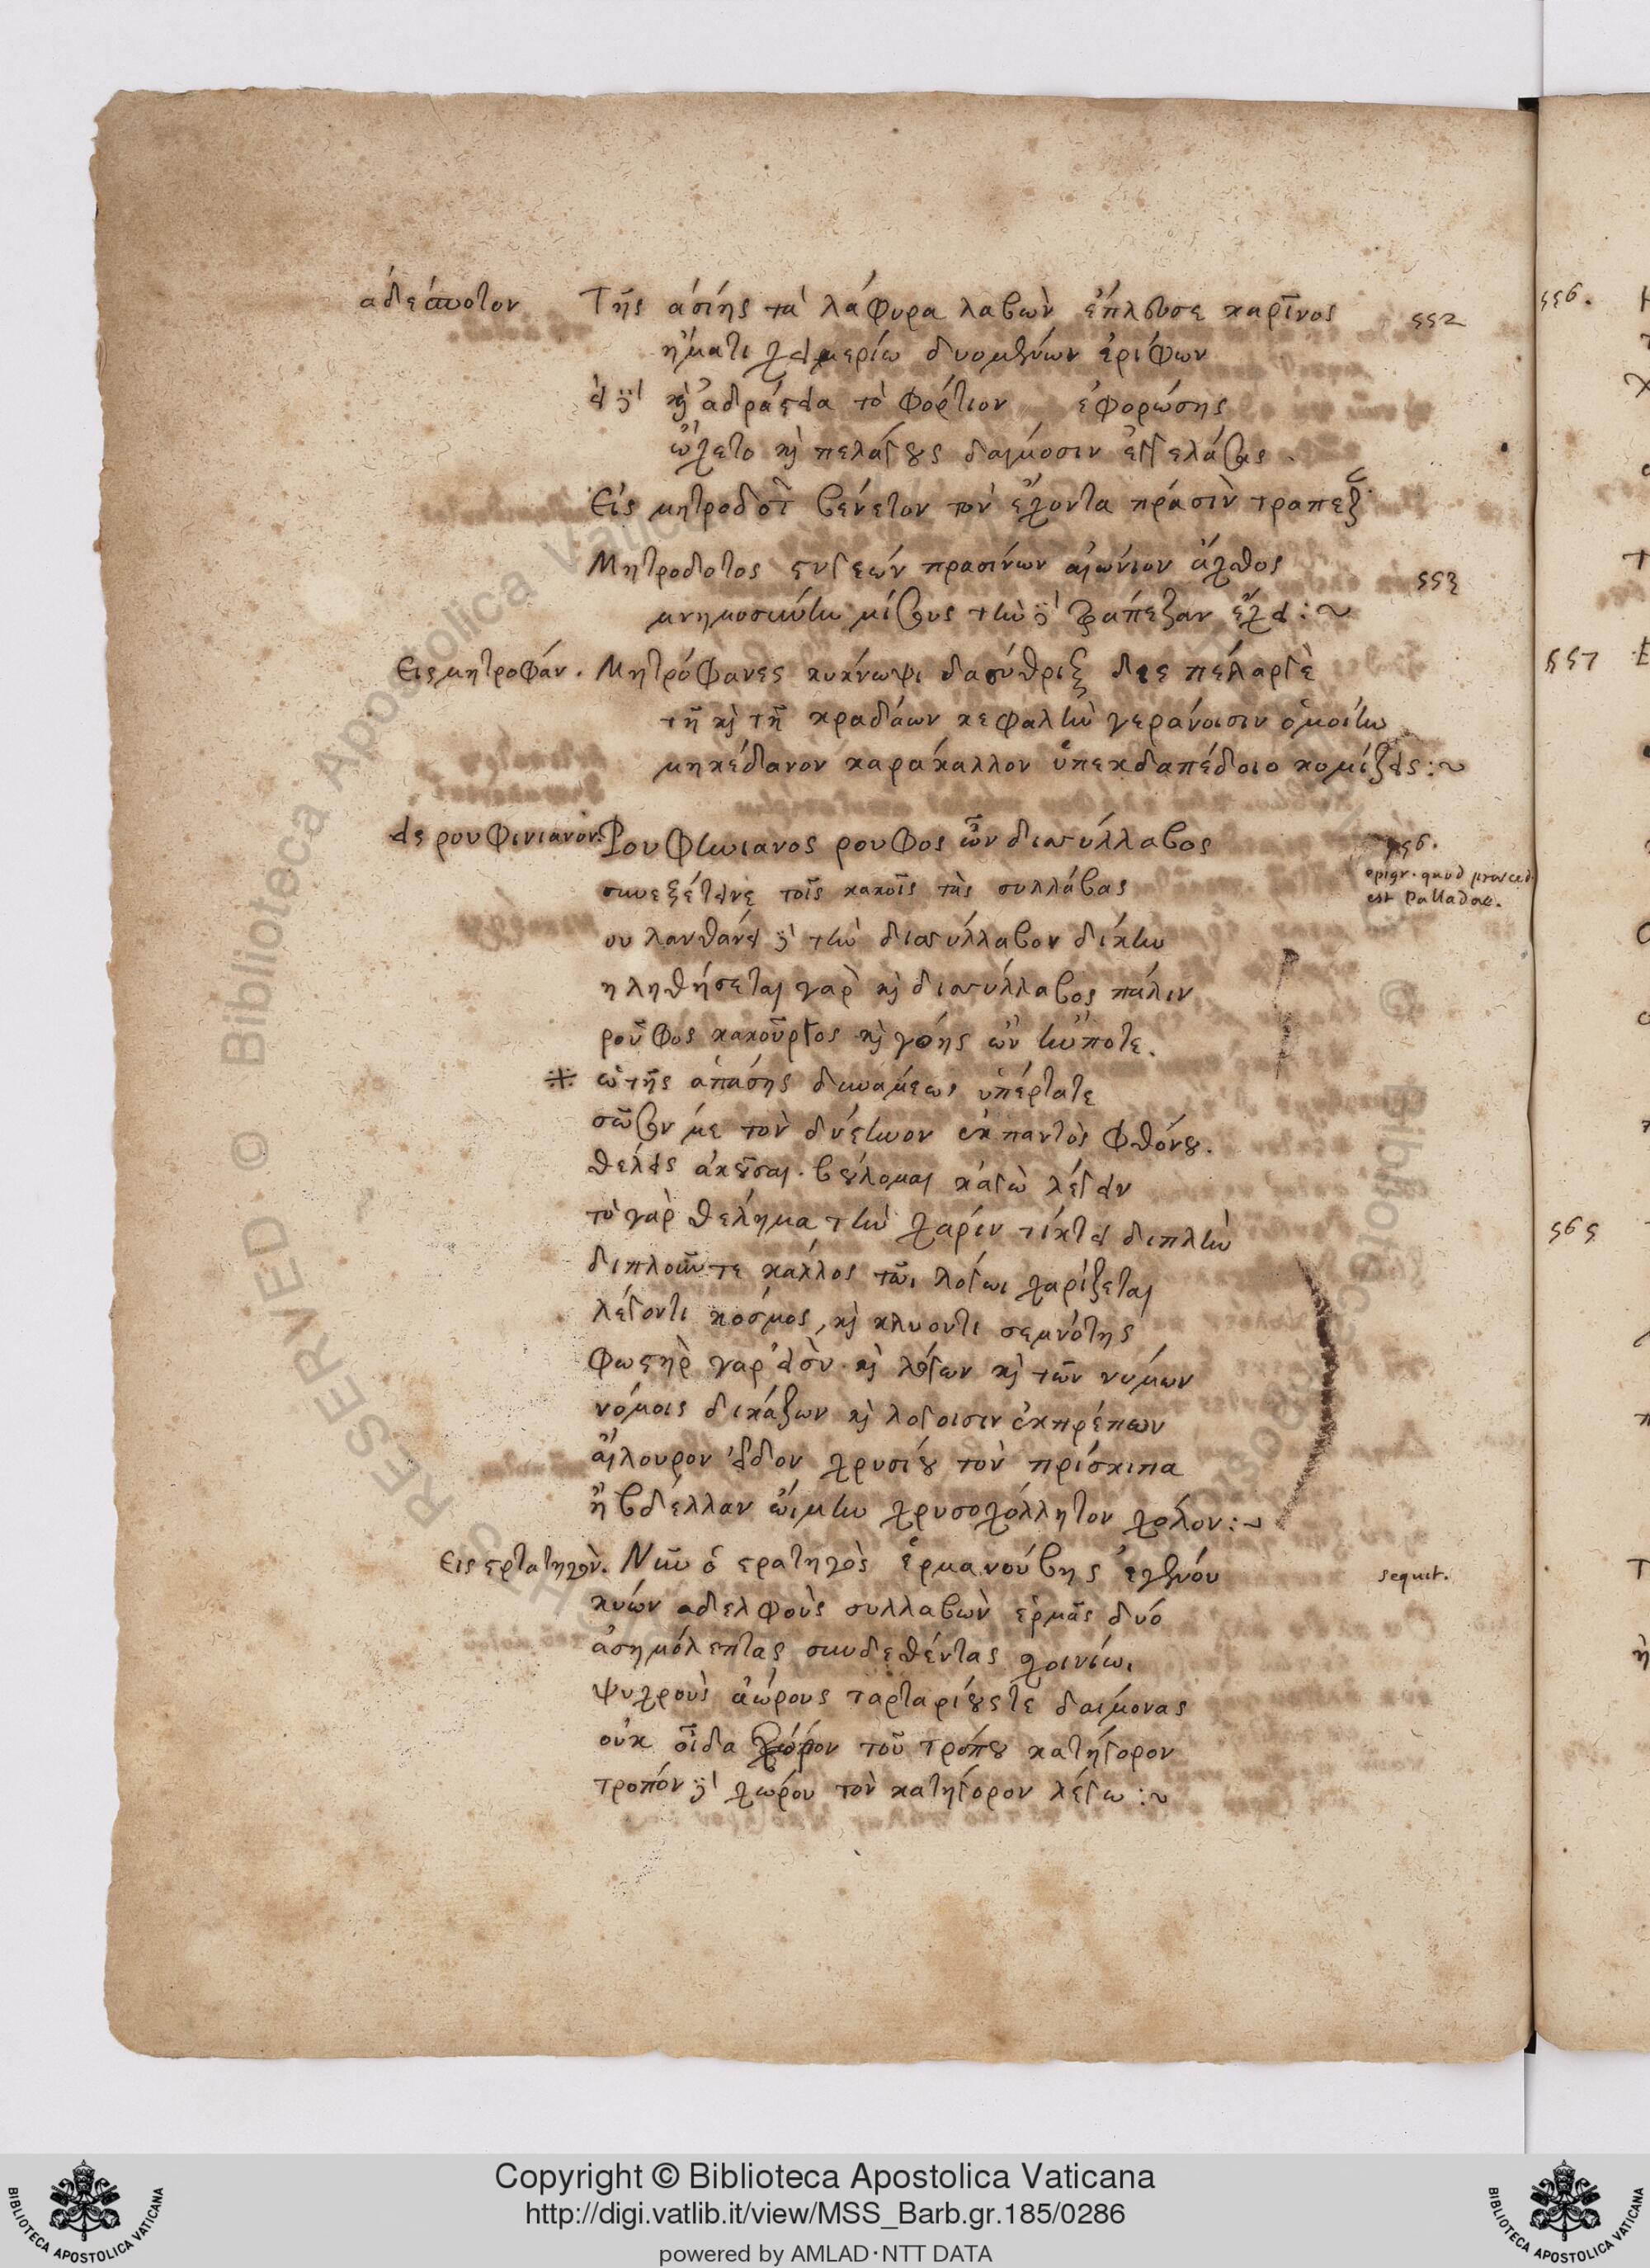 αδέσποτον Τῆς ἀσίης τὰ λάφυρα λαβὼν ἔπλευσε καρῖνος 552
ἤματι χειμερίω δυομένων ἐρίφων
εἶδε καὶ ἀδράστεια τὸ φορτίον ἐφορώσης
ὤχετο καὶ πελάγους δαίμοσιν ἐγγελάσας.
Εἰς μητροδοτ βένετον τὸν ἔχοντα πράσιν τραπεζ
Μητρόδοτος στυγέων πρασίνων αἰώνιον ἄχθος 553
μνημοσύνην μίσους τὴν δὲ τράπεζαν ἔχει:~
Εις μητροφάν. Μητρόφανες κυκνωψι δασύθριξ δῖε πελαργὲ
τῆ καὶ τῆ κραδάων κεφαλὴν γεράνοισιν ὁμοίην
μηκέδανον καράκαλλον ὑπεκδαπέδοιο κομίζεις:~
εις ρουφινιανόν. Ρουφινιανος ρουφος ὢν δισύλλαβος 556.
epigr. quod praeced.
est Palladae.
συνεξέτεινε τοῖς κακοῖς τὰς συλλάβας
ου λανθάνει δὲ τὴν δισύλλαβον δίκην
κληθήσεται γὰρ καὶ δισύλλαβος πάλιν
ροῦφος κακοῦργος καὶ γόης ὢν ἦν ποτε.
※ ὦ τῆς ἁπάσης δυνάμεως ὑπέρτατε
σῶσον με τὸν δύστηνον ἐκ παντὸς φθόνου.
θέλεις ἀκοῦσαι. βούλομαι κἀγὼ λέγειν
τὸ γὰρ θέλημα τὴν χάριν τίκτει διπλῆν
διπλοῦν τε κάλλος τῶι λόγωι χαρίζεται
λέγοντι κόσμος, καὶ κλυοντι σεμνότης
φωστὴρ γαρ εἶ σὺ καὶ λόγων καὶ τῶν νόμων
νόμοις δικάζων καὶ λόγοισιν ἐκπρέπων
αἴλουρον εἶδον χρυσίου τὸν πρίσκιπα
ἢ βδέλλαν ὠμὴν χρυσοχόλλητον χόλον:~
Εις στρατηγόν. Νῦν ὁ στρατηγὸς ἑρμανούβης ἐγένου sequit.
κύων ἀδελφοὺς συλλαβὼν ἑρμᾶς δύο
ἀσημόλεπτας συνδεθέντας σχοινίωι
ψυχροὺς ἀώρους ταρταρίους τε δαίμονας
οὐκ οἶδα χῶρον τοῦ τρόπου κατήγορον
τρόπον δὲ χώρου τὸν κατήγορον λέγω:~
556.
557
565
Copyright © Biblioteca Apostolica Vaticana
http://digi.vatlib.it/view/MSS_Barb.gr.185/0286
powered by AMLAD·NTT DATA